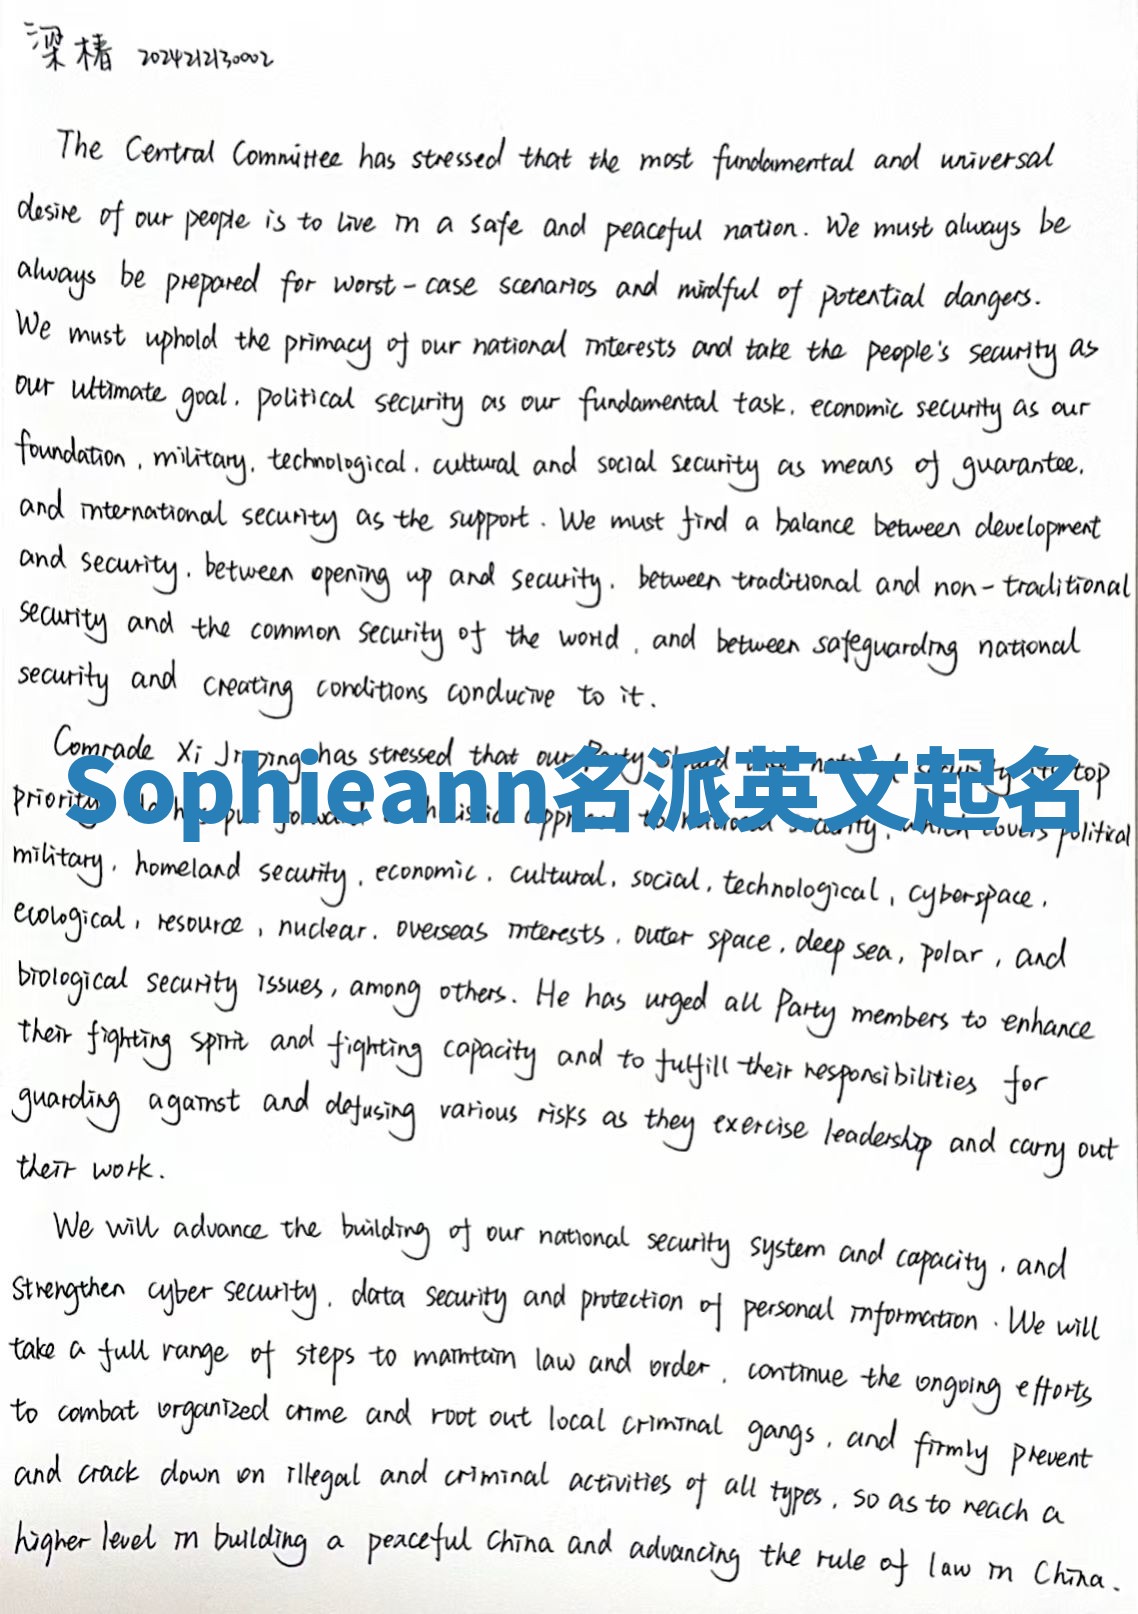 梁椿 2024212130002
The Central Committee has stressed that the most fundamental and universal
desire of our people is to live in a safe and peaceful nation. We must always be
always be prepared for worst-case scenarios and mindful of potential dangers.
We must uphold the primacy of our national interests and take the people's security as
our ultimate goal, political security as our fundamental task, economic security as our
foundation, military, technological, cultural and social security as means of guarantee,
and international security as the support. We must find a balance between development
and security, between opening up and security, between traditional and non-traditional
security and the common security of the world, and between safeguarding national
security and creating conditions conducive to it.
Comrade Xi Jinping has stressed that our Party should top
Sophieann名派英文起名
priority. put forward holistic to national security, which covers political
military, homeland security, economic, cultural, social, technological, cyberspace,
ecological, resource, nuclear, overseas interests, outer space, deep sea, polar, and
biological security issues, among others. He has urged all Party members to enhance
their fighting spirit and fighting capacity and to fulfill their responsibilities for
guarding against and defusing various risks as they exercise leadership and carry out
their work.
We will advance the building of our national security system and capacity, and
strengthen cyber security, data security and protection of personal information. We will
take a full range of steps to maintain law and order, continue the ongoing efforts
to combat organized crime and root out local criminal gangs, and firmly prevent
and crack down on illegal and criminal activities of all types, so as to reach a
higher level in building a peaceful China and advancing the rule of law in China.